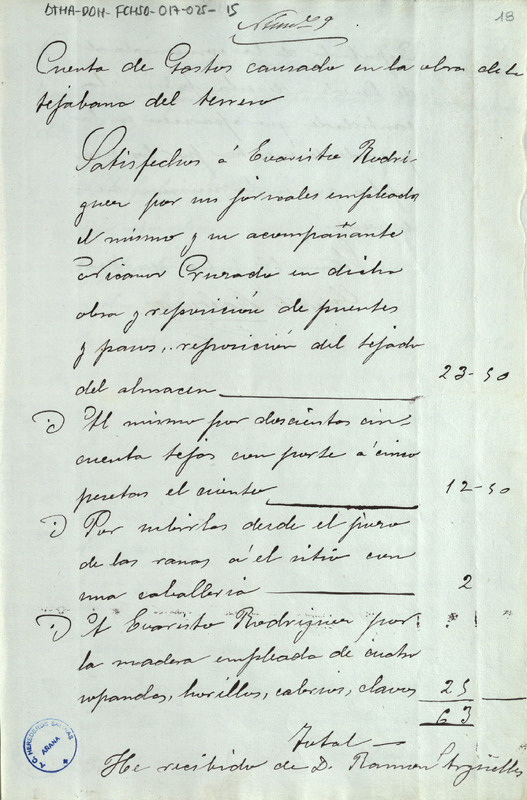 DTMA-DOM-FCHSD-017-025- 15
18
Núm.º 9
Cuenta de Gastos causado en la obra de la
tejabana del terreno
Satisfechos á Evaristo Rodri-
guez por sus jornales empleados
el mismo y su acompañante
Nicanor Cruzado en dicha
obra y reposición de puentes
y pasos, reposición del tejado
del almacen 23-50
Al mismo por doscientos cin-
cuenta tejas con porte á cinco
pesetas el ciento 12-50
Por subirlas desde el
de las ranas á el sitio con
una caballeria 2
A Evaristo Rodriguez por
la madera empleada de cuatro
ropandas, horillos, cabrios, clavos 25
63
Total
He recibido de D. Ramon Argüelles
A.C. HEREDEROS SALINAS
ARANA